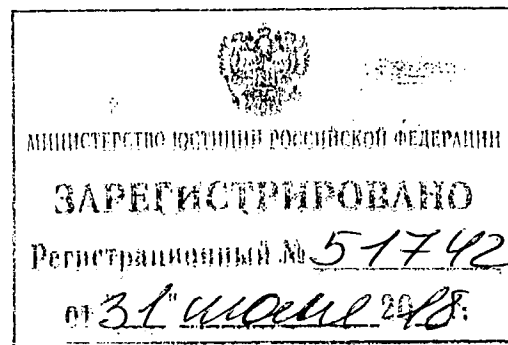 МИНИСТЕРСТВО ЮСТИЦИИ РОССИЙСКОЙ ФЕДЕРАЦИИ
ЗАРЕГИСТРИРОВАНО
Регистрационный № 51742
от "31" июля 2018.